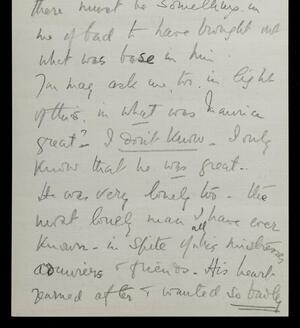 there must be something in
me of bad to have brought out
what was base in him.
You may ask me, too, in light
of this, in what was Maurice
great? - I don't know. I only
know that he was great.
He was very lonely too - the
most lonely man I have ever
known - in spite of all his mistresses
admirers & friends. His heart
yearned after & wanted so badly